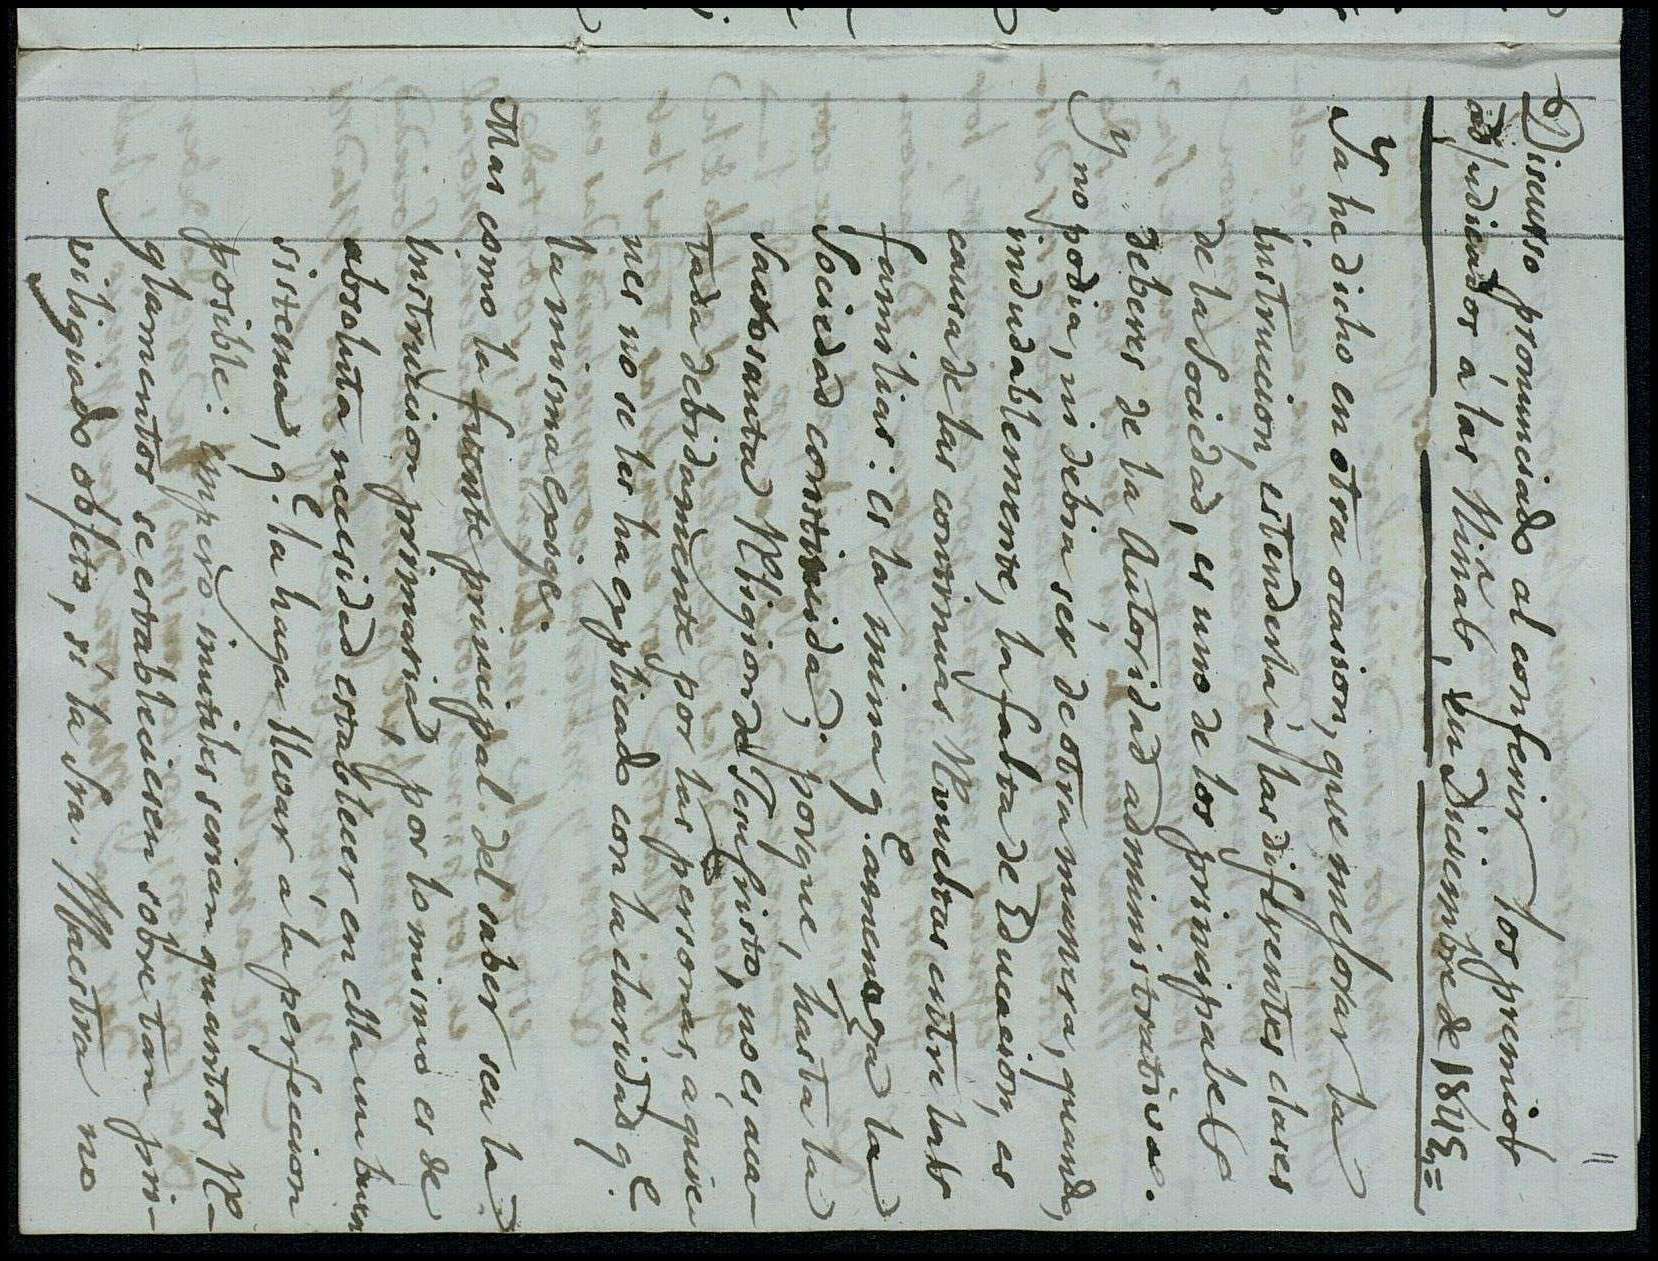 Discurso pronunciado al conferir los premios
adjudicados á las Niñas, en Diciembre de 1845,=
Ya he dicho en otra ocasion, que mejorar la
Instruccion, estenderla á las diferentes clases
de la Sociedad, es uno de los principales
deberes de la Autoridad administrativa.
Y no podia, ni debia ser de otra manera, quando,
indudablemente, la falta de Educacion, es
causa de las continuas Revueltas entre las
familias: es la mina q.e amenaza la
Sociedad constituida; porque, hasta la
Sacrosanta Religion de Jesucristo, no es aca-
tada debidamente por las personas, á quie
nes no se les ha explicado con la claridad q.e
la misma exige.
Mas como la fuente principal del saber sea la
Instruccion primaria, por lo mismo es de
absoluta necesidad establecer en ella un buen
sistema, q.e la haga llevar á la perfeccion
posible: empero inutiles serian quantos Re-
glamentos se estableciesen sobre tan pri-
vilegiado objeto, si la Sra. Maestra no